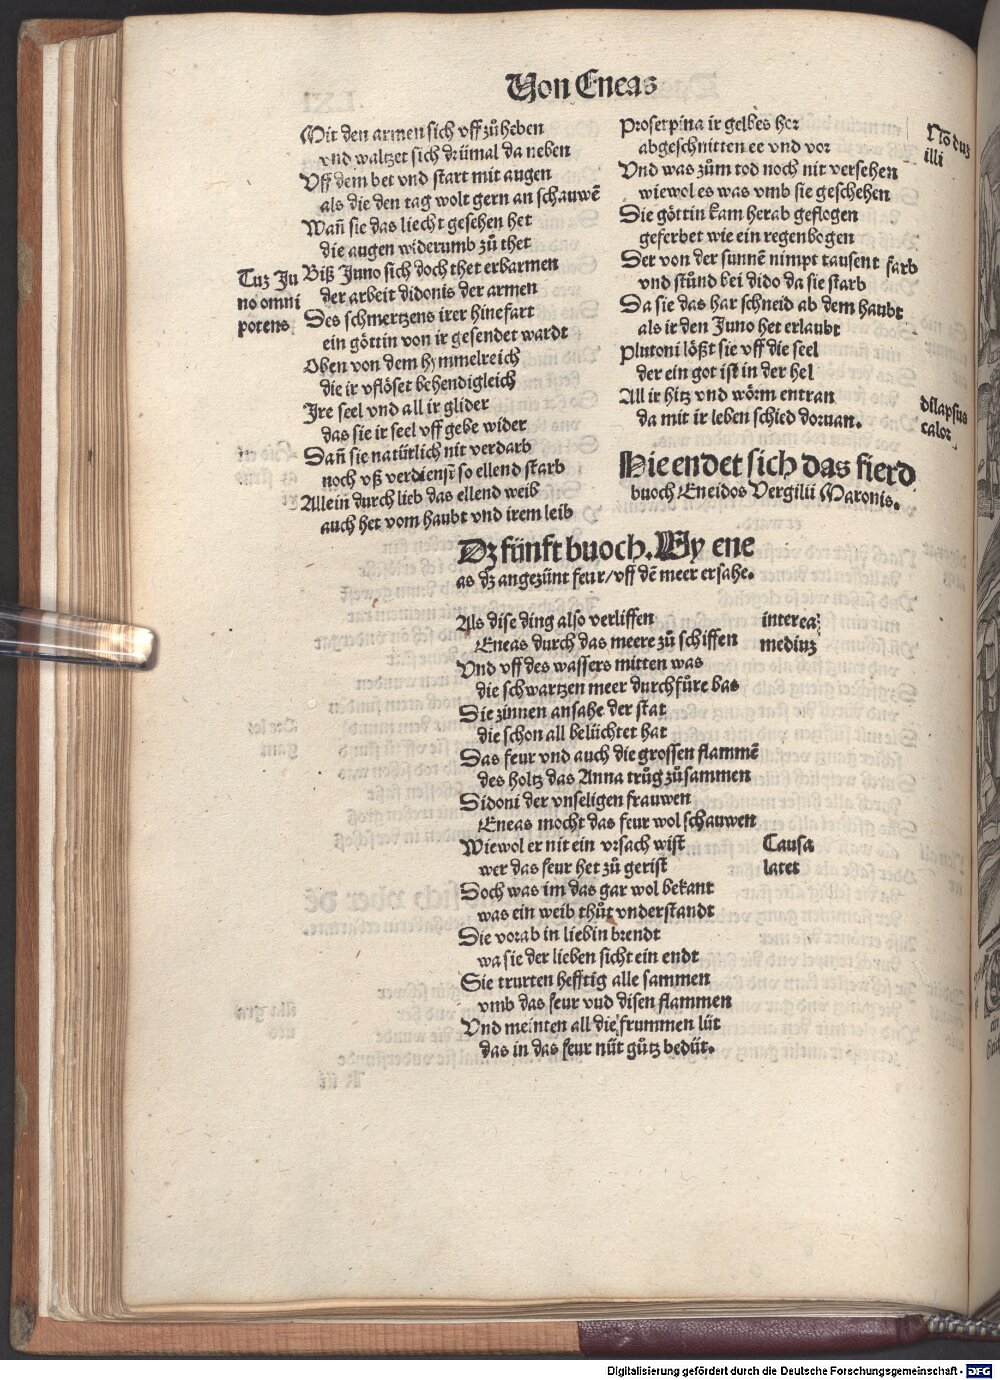 Von Eneas
Mit den armen sich vff zůheben
vnd waltzet sich drümal da neben
Vff dem bet vnd start mit augen
als die den tag wolt gern an schauwē
Wañ sie das liecht gesehen het
die augen widerumb zů thet
Tuz Ju
no omni
potens
Biß Juno sich doch thet erbarmen
der arbeit didonis der armen
Des schmertzens irer hinefart
ein göttin von ir gesendet wardt
Oben von dem hymmelreich
die ir vflöset behendigleich
Jre seel vnd all ir glider
das sie ir seel vff gebe wider
Dañ sie natürlich nit verdarb
noch vß verdienst so ellend starb
Allein durch lieb das ellend weib
auch het vom haubt vnd irem leib
Proserpina ir gelbes hor
abgeschnitten ee vnd vor
Nō duz
illi
Vnd was zům tod noch nit versehen
wiewol es was vmb sie geschehen
Die göttin kam herab geflogen
geferbet wie ein regenbogen
Der von der sunnē nimpt tausent farb
vnd stůnd bei dido da sie starb
Da sie das har schneid ab dem haubt
als ir den Juno het erlaubt
Plutoni lößt sie vff die seel
der ein got ist in der hel
All ir hitz vnd wörm entran
da mit ir leben schied doruan.
dilapsus
calor
Hie endet sich das fierd
buoch Eneidos Vergilii Maronis.
Dz fünft buoch. Wy ene
as dz angezünt feur/vff dē meer ersahe.
Als dise ding also verliffen
Eneas durch das meere zů schiffen
interea
mediuz
Vnd vff des wassers mitten was
die schwartzen meer durchfůre bas
Die zinnen ansahe der stat
die schon all belüchtet hat
Das feur vnd auch die grossen flammē
des holtz das Anna trůg zůsammen
Sidoni der vnseligen frauwen
Eneas mocht das feur wol schauwen
Wiewol er nit ein vrsach wist
wer das feur het zů gerist
Causa
latet
Doch was im das gar wol bekant
was ein weib thůt vnderstandt
Die vorab in liebin brendt
wa sie der lieben sicht ein endt
Sie trurten hefftig alle sammen
vmb das feur vnd disen flammen
Vnd meinten all die frummen lüt
das in das feur nüt gůtz bedüt.
Digitalisierung gefördert durch die Deutsche Forschungsgemeinschaft - DFG